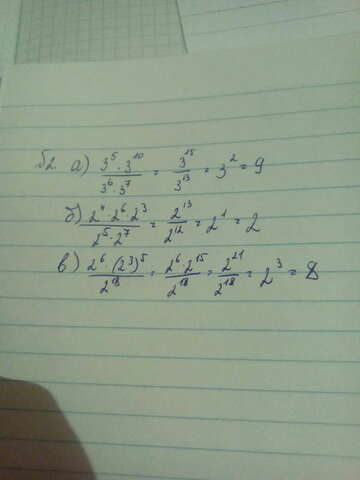 б2. а) (3⁵·3¹⁰)/(3⁶·3⁷) = 3¹⁵/3¹³ = 3² = 9
б) (2⁴·2⁶·2³)/(2⁵·2⁷) = 2¹³/2¹² = 2¹ = 2
в) (2⁶·(2³)⁵)/2¹⁸ = (2⁶·2¹⁵)/2¹⁸ = 2²¹/2¹⁸ = 2³ = 8